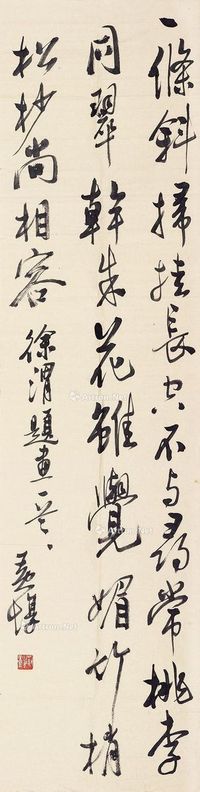 一條斜掃掛長空不与尋常桃李
同翠幹朱花雖覺媚竹梢
松杪尚相容 徐渭題畫一首
黃惇